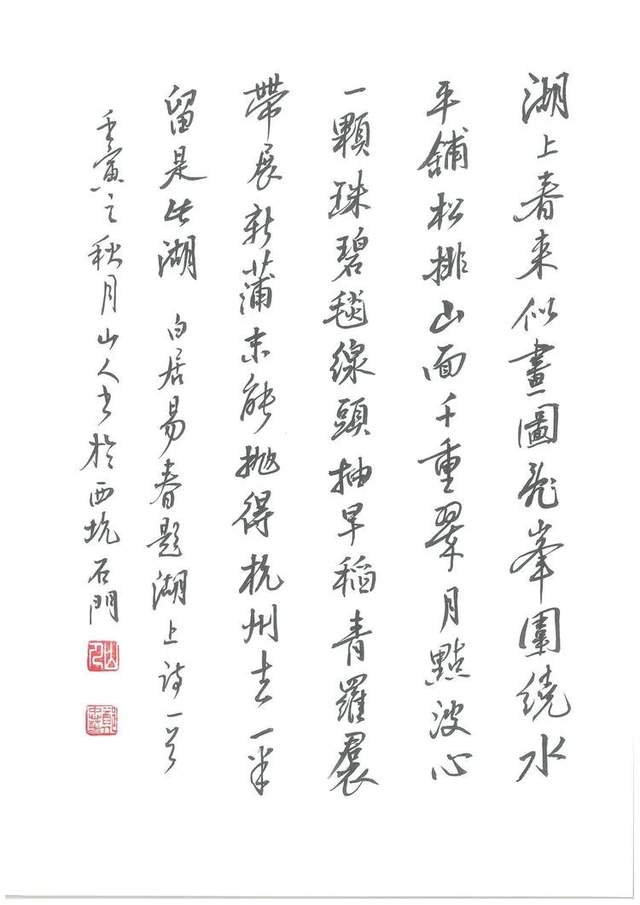 湖上春来似畫圖亂峯圍繞水
平舖松排山面千重翠月點波心
一顆珠碧毯線頭抽早稻青羅裠
帶展新蒲未能抛得杭州去一半
留是此湖 白居易春題湖上诗一首
壬寅之秋月山人书於西坑石門